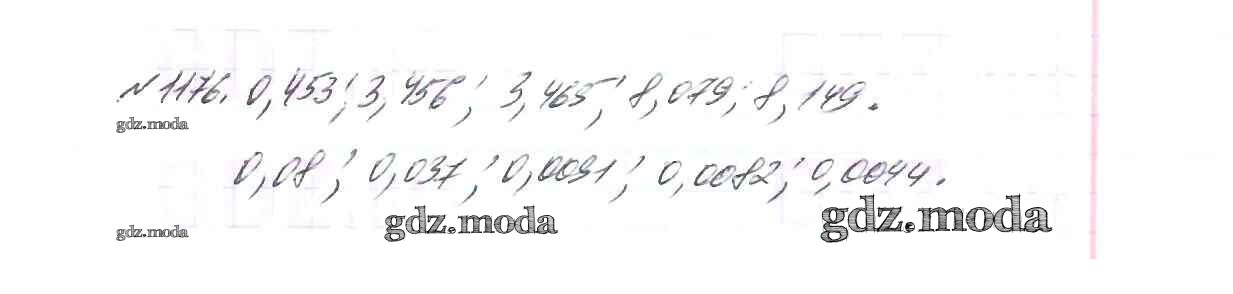 №1176. 0,453; 3,456; 3,465; 8,079; 8,149.
gdz.moda
0,08; 0,037; 0,0091; 0,0082; 0,0044.
gdz.moda gdz.moda gdz.moda